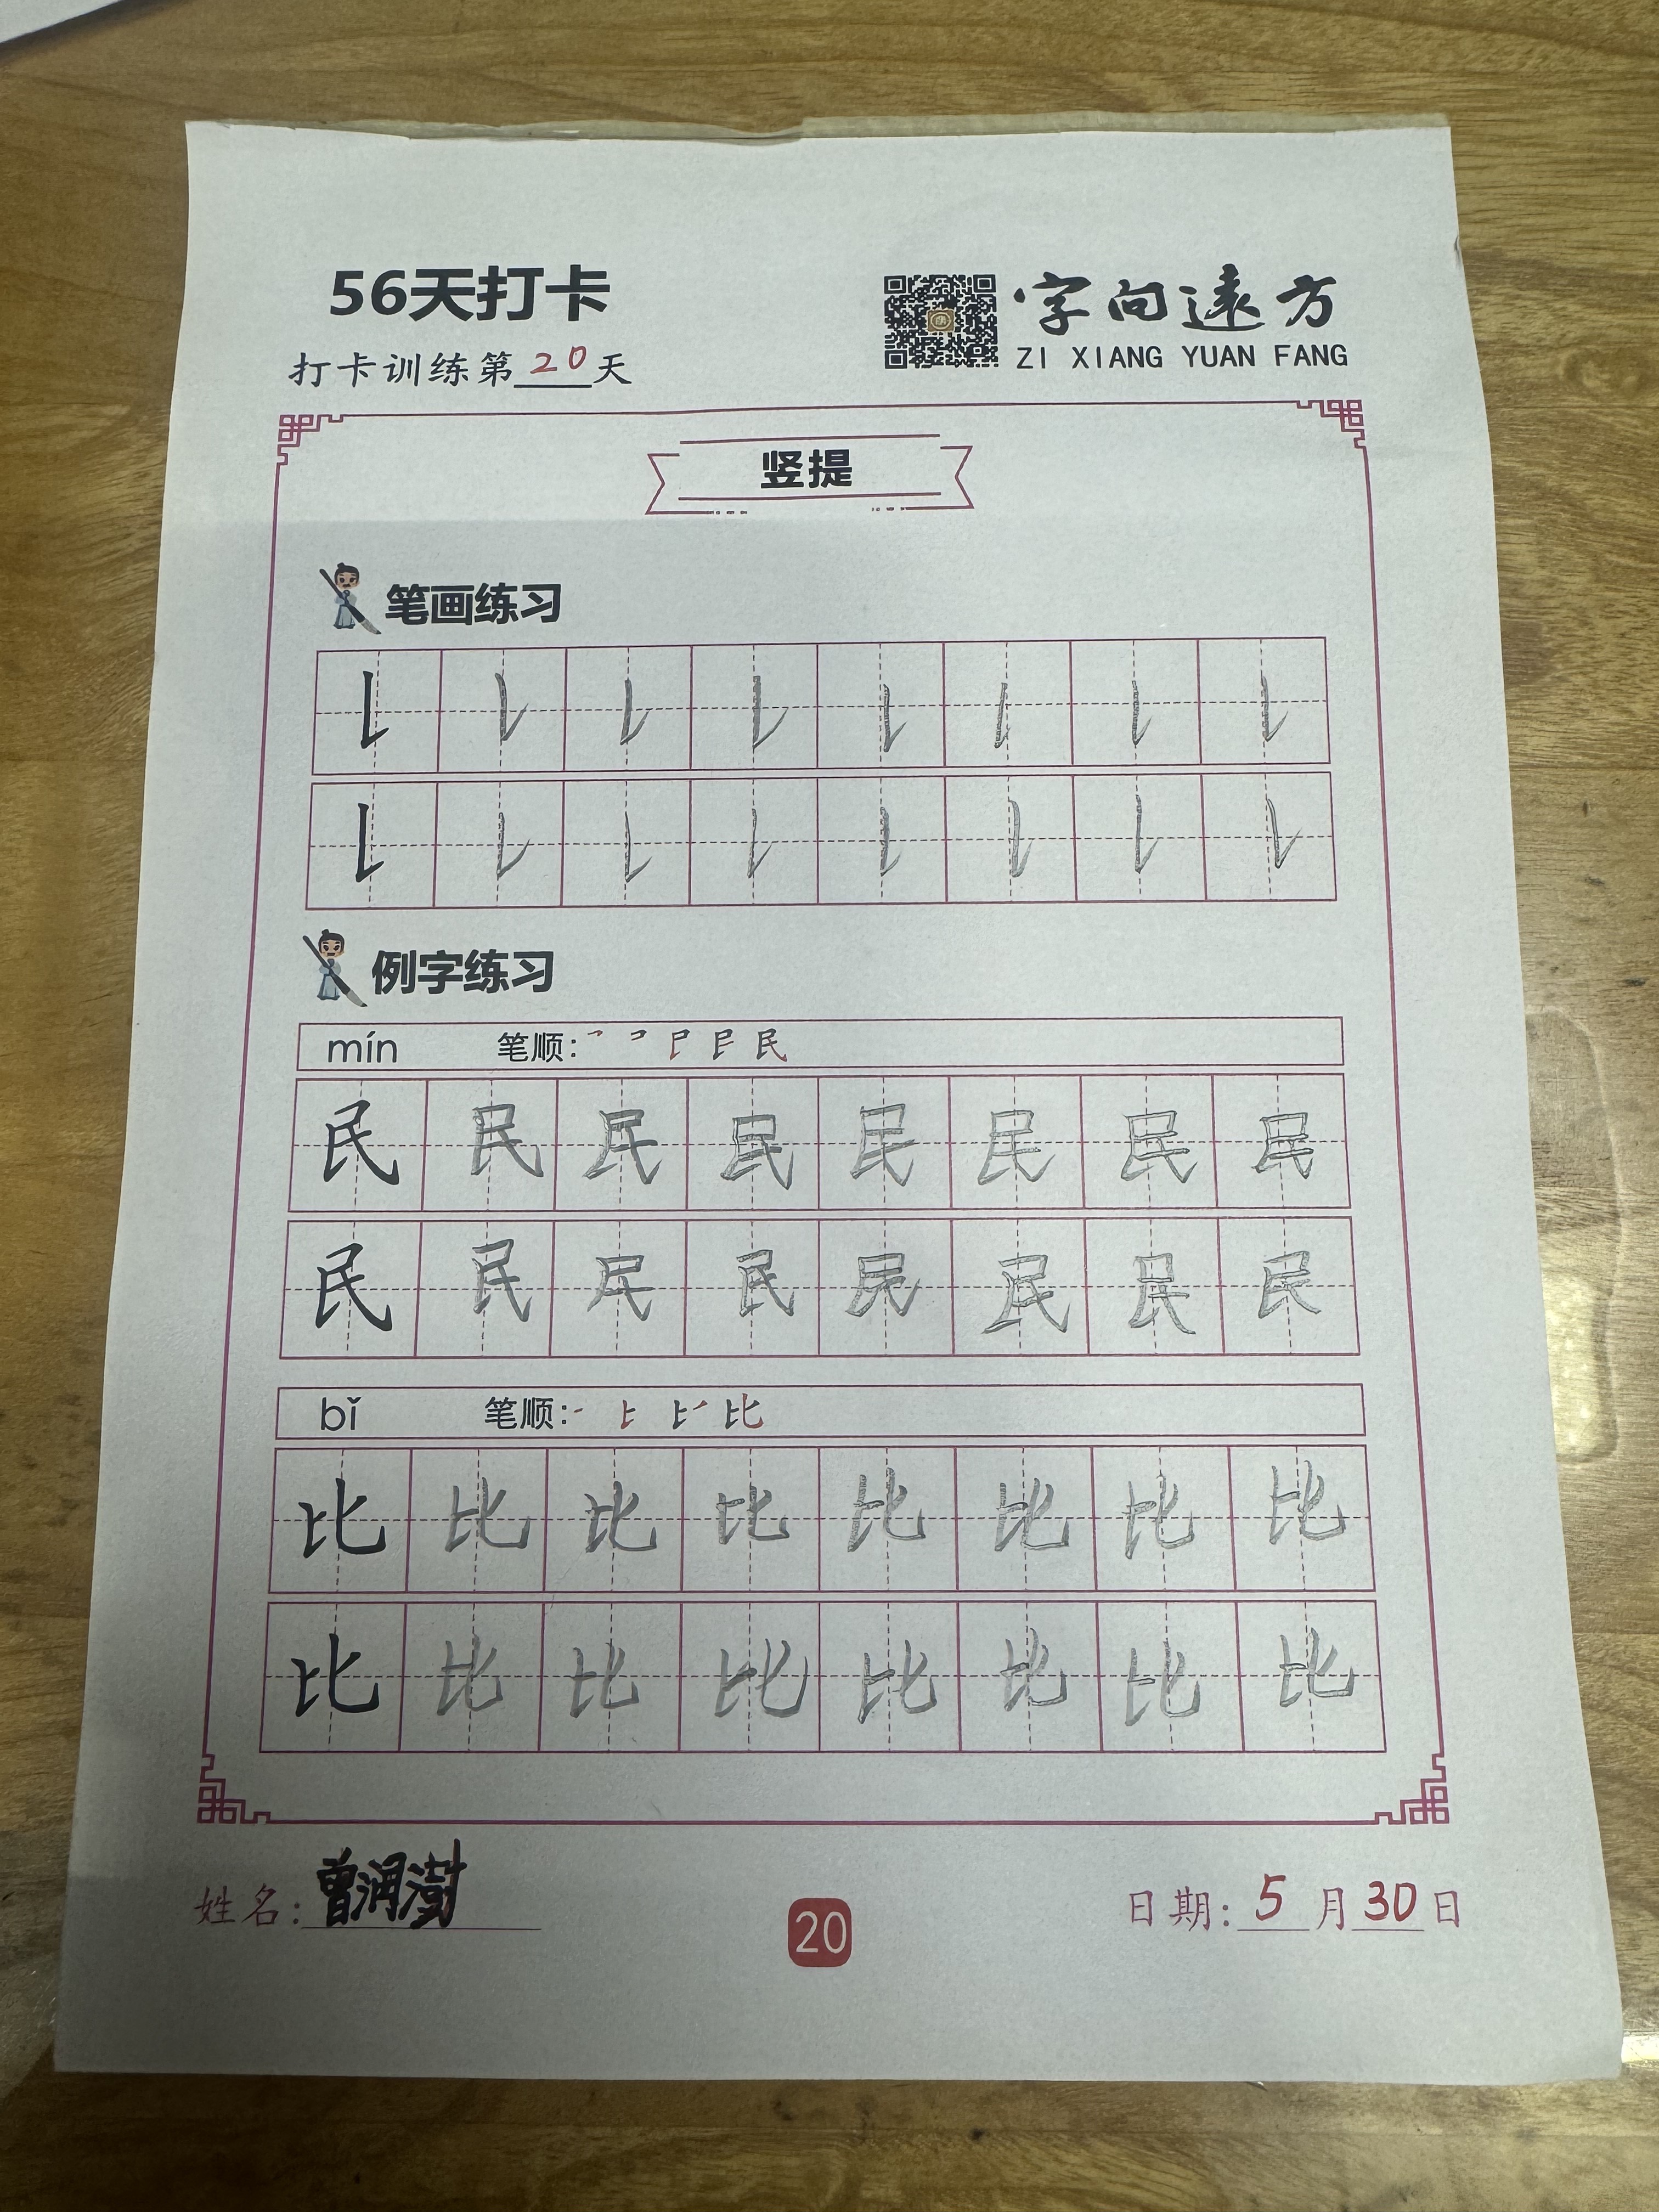 56天打卡
字向遠方
ZI XIANG YUAN FANG
打卡训练第20天
竖提
笔画练习
例字练习
mín 笔顺: 民
民 民 民 民 民 民 民 民
民 民 民 民 民 民 民 民
bǐ 笔顺: 比
比 比 比 比 比 比 比 比
比 比 比 比 比 比 比 比
姓名: 曾润澍
20
日期: 5月30日